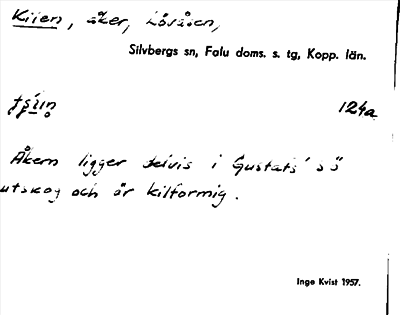 Kilen, åker, Lövåsen,
Silvbergs sn, Falu doms. s. tg, Kopp. län.
124a
Åkern ligger delvis i Gustafs' sö
utskog och är kilformig.
Inge Kvist 1957.